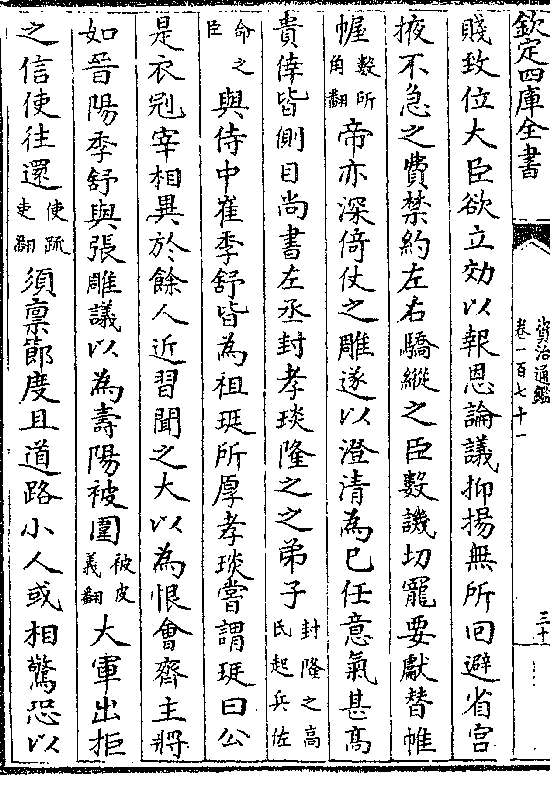 欽定四庫全書
資治通鑑
卷一百七十一
三十
賤致位大臣欲立効以報恩論議抑揚無所回避省宮
掖不急之費禁約左右驕縱之臣數譏切寵要獻替帷
幄數所角翻帝亦深倚仗之雕遂以澄清為已任意氣甚髙
貴倖皆側目尚書左丞封孝琰隆之之弟子封隆之高氏起兵佐
命之臣與侍中崔季舒皆為祖珽所厚孝琰嘗謂珽曰公
是衣冠宰相異於餘人近習聞之大以為恨會齊主將
如晉陽季舒與張雕議以為壽陽被圍被皮義翻大軍出拒
之信使往還使疏吏翻須禀節度且道路小人或相驚恐以